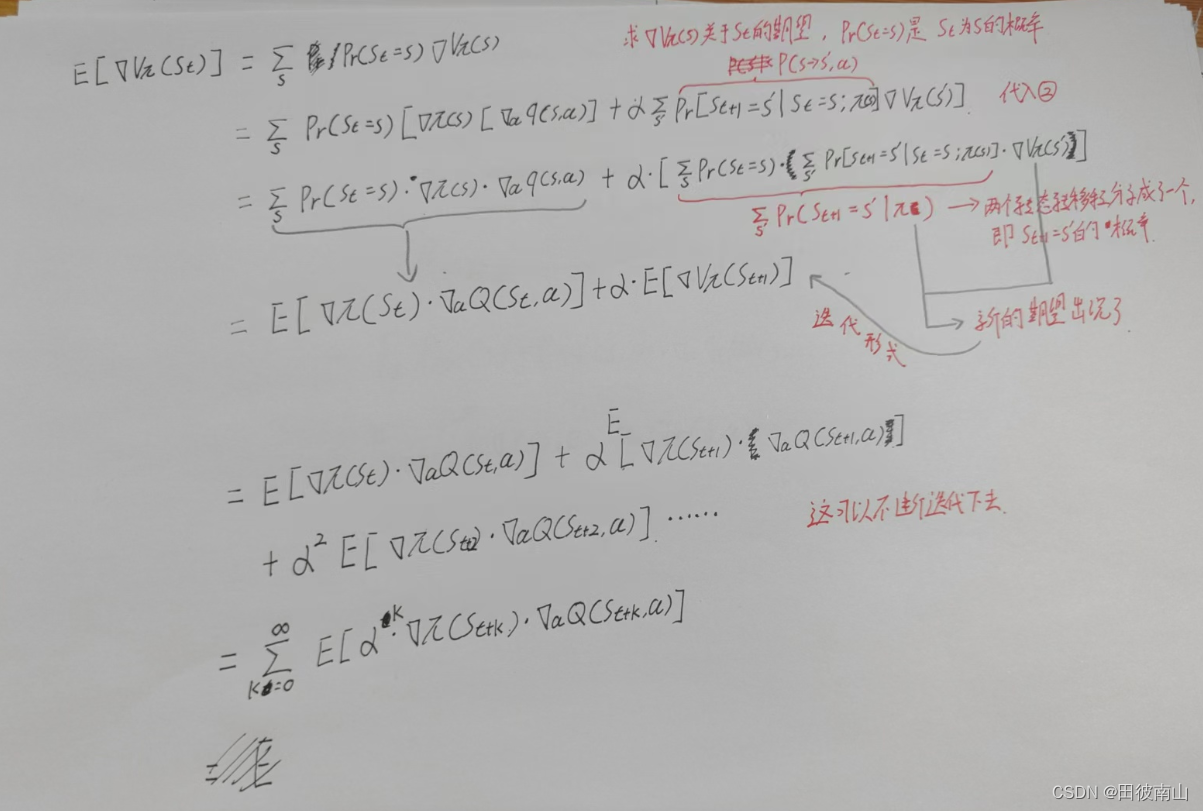 求∇Vπ(s)关于St的期望，Pr(St=s)是 St为S的概率
E[∇Vπ(St)] = Σ_s Pr(St=s) ∇Vπ(s)
P(s→s',a)
= Σ_s Pr(St=s) [∇π(s) [∇a q(s,a)] + α Σ_s' Pr[St+1=s' | St=s; π(s)] ∇Vπ(s')] 代入②
= Σ_s Pr(St=s)·∇π(s)·∇a q(s,a) + α·[Σ_s Pr(St=s)·(Σ_s' Pr[St+1=s' | St=s; π(s)]·∇Vπ(s'))]
Σ_s' Pr(St+1=s' | π) → 两个状态转移 成了一个，
即 St+1=s'的概率
= E[∇π(St)·∇aQ(St,a)] + α·E[∇Vπ(St+1)]
迭代形式
新的期望出现了
= E[∇π(St)·∇aQ(St,a)] + α E[∇π(St+1)·∇aQ(St+1,a)]
+ α² E[∇π(St+2)·∇aQ(St+2,a)] ……
这可以不断迭代下去
= Σ_{k=0}^{∞} E[α^k·∇π(St+k)·∇aQ(St+k,a)]
CSDN @田彼南山